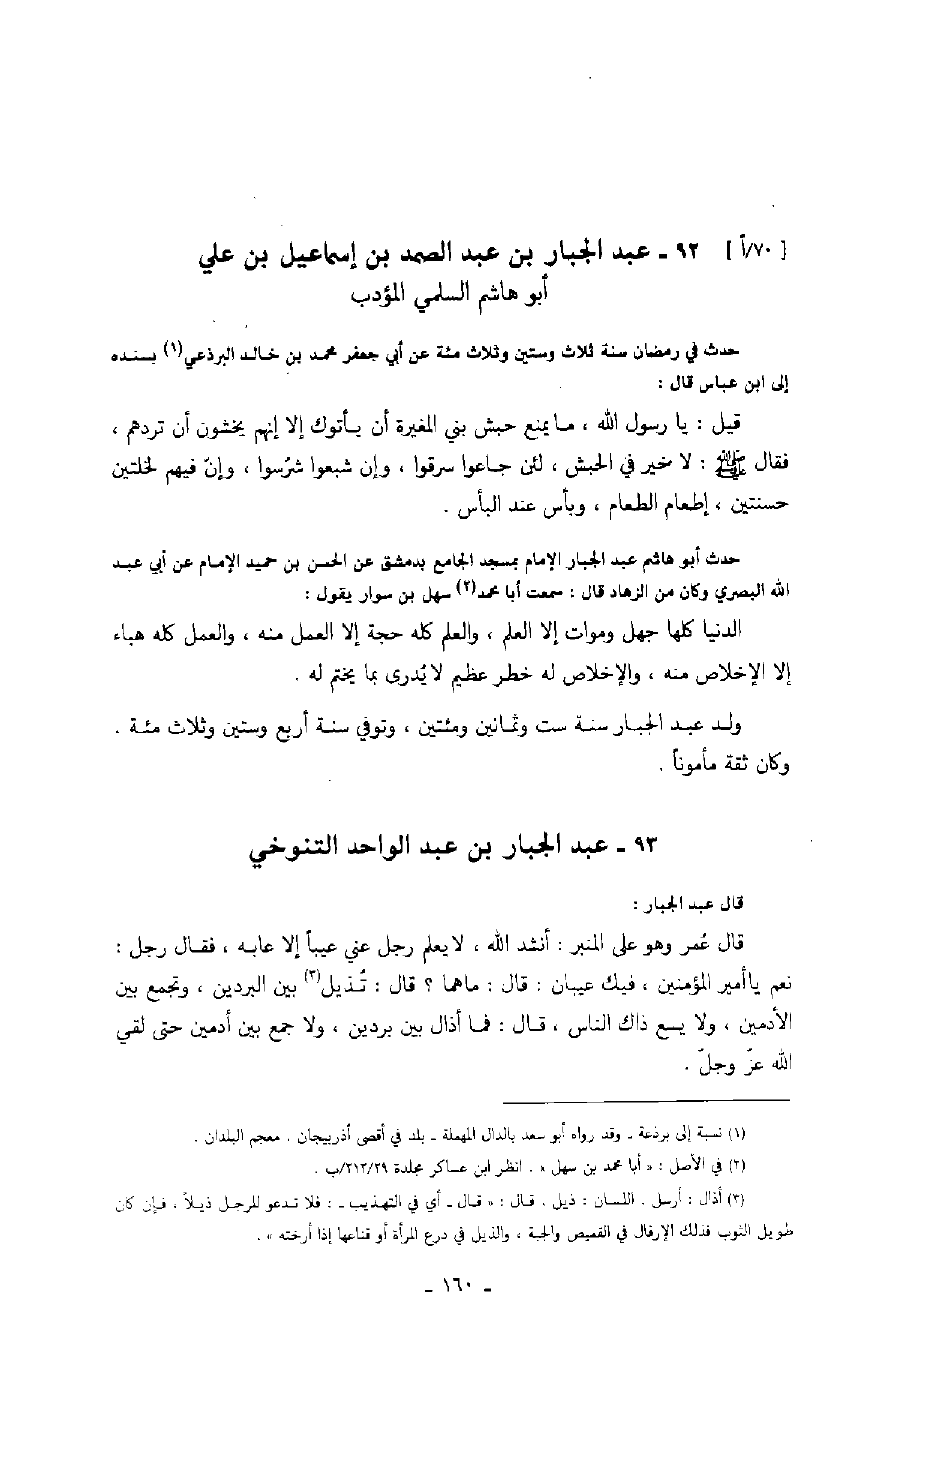 [ ٧٠/أ ] ٩٢ ـ عبد الجبار بن عبد الصمد بن إسماعيل بن علي
أبو هاشم السلمي المؤدب
حدث في رمضان سنة ثلاث وستين وثلاث مئة عن أبي جعفر محمد بن خالد البرذعي(١) بسنده
إلى ابن عباس قال :
قيل : يا رسول الله ، ما يمنع حبش بني المغيرة أن يأتوك إلا إنهم يخشون أن تردهم ،
فقال ﷺ : لا خير في الحبش ، لئن جاعوا سرقوا ، وإن شبعوا شرُسوا ، وإنّ فيهم لخلتين
حسنتين ، إطعام الطعام ، وبأس عند البأس .
حدث أبو هاشم عبد الجبار الإمام بمسجد الجامع بدمشق عن الحسن بن حميد الإمام عن أبي عبد
الله البصري وكان من الزهاد قال : سمعت أبا محمد(٢) سهل بن سوار يقول :
الدنيا كلها جهل وموات إلا العلم ، والعلم كله حجة إلا العمل منه ، والعمل كله هباء
إلا الإخلاص منه ، والإخلاص له خطر عظيم لا يُدرى بما يختم له .
ولد عبد الجبار سنة ست وثمانين ومئتين ، وتوفي سنة أربع وستين وثلاث مئة .
وكان ثقة مأموناً .
٩٣ ـ عبد الجبار بن عبد الواحد التنوخي
قال عبد الجبار :
قال عُمر وهو على المنبر : أنشد الله ، لا يعلم رجل عني عيباً إلا عابه ، فقال رجل :
نعم ياأمير المؤمنين ، فيك عيبان : قال : ماهما ؟ قال : تُذيل(٣) بين البردين ، وتجمع بين
الأدمين ، ولا يسع ذاك الناس ، قال : فما أذال بين بردين ، ولا جمع بين أدمين حتى لقي
الله عزّ وجلّ .
(١) نسبة إلى برذعة ـ وقد رواه أبو سعد بالدال المهملة ـ بلد في أقصى أذربيجان . معجم البلدان .
(٢) في الأصل : « أبا محمد بن سهل » . انظر ابن عساكر مجلدة ٢١٣/٢٩/ب .
(٣) أذال : أرسل . اللسان : ذيل . قال : « قال ـ أي في التهذيب ـ : فلا تدعو للرجل ذيلاً ، فإن كان
طويل الثوب فذلك الإرفال في القميص والجبة ، والذيل في درع المرأة أو قناعها إذا أرخته » .
ـ ١٦٠ ـ